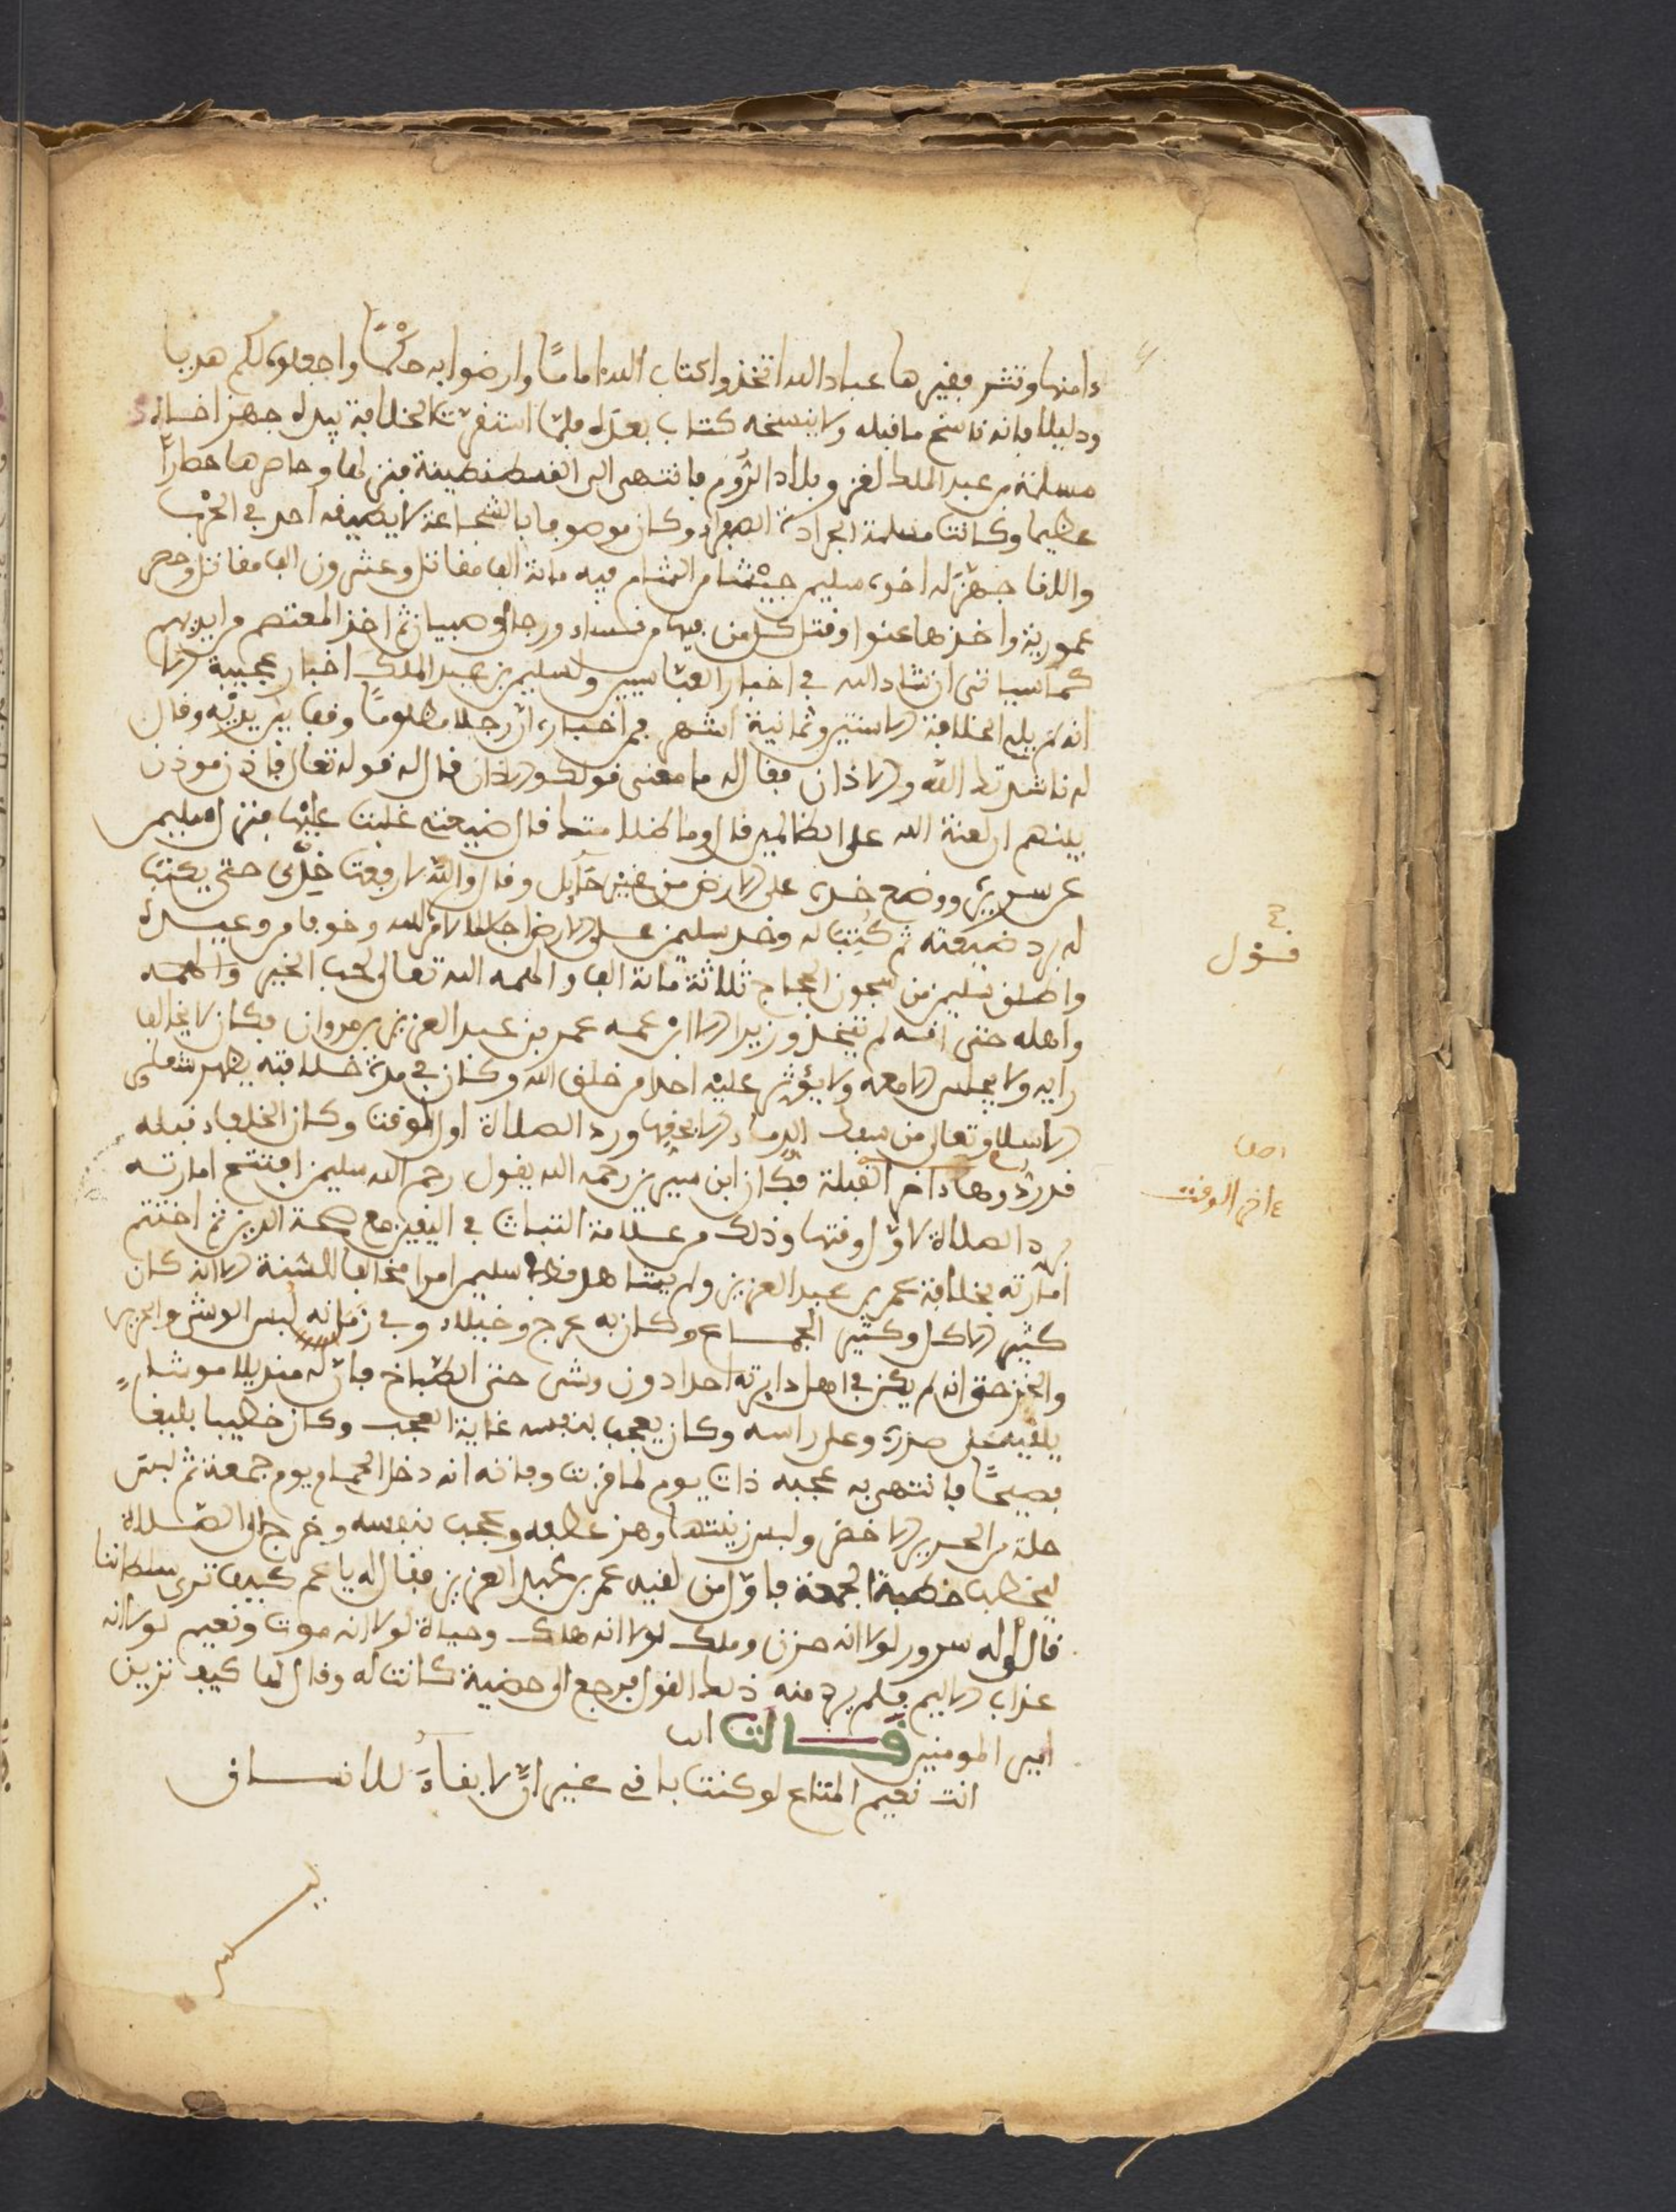 ءامنها وتشر بفيرها عباد الله اتخذوا كتاب الله اماما وارضوا به حكما واجعلوه لكم هديا
ودليلا فانه ناسخ ما قبله ولا ينسخه كتاب بعده فلما استقرت الخلافة بيده جهز اخاه
مسلمة بن عبد الملك لغزو بلاد الروم فانتهى الى القسطنطينة فنزلها وحاصرها حصارا
عظيما وكانت مسلمة الجرادة الصفراء وكان موصوفا بالشجاعة لا يضيفه احد في الحرب
والفا جهز له اخوه سليمن جيشا من الشام فيه مائة الف مقاتل وعشرون الف مقاتل وحصر
عمورية واخذها عنوا وقتل كل من فيها من نساء ورجال وصبيان ثم اخذ المعتصم من ايديهم
كما سياتي ان شاء الله في اخبار العباسيين ولسليمن بن عبد الملك اخبار عجيبة الا
انه لم يل الخلافة الا سنتين وثمانية اشهر فمن اخباره ان رجلا مظلوما وقف بين يديه وقال
له ناشدتك الله والاذان فقال له ما معنى قولك والاذان قال له قوله تعالى فاذن موذن
بينهم ان لعنة الله على الظالمين قال وما ظلامتك قال ضيعتي غلبت عليها فنزل سليمن
عن سريره ووضع خده على الارض من غير حايل وقال والله لا رفعت خدي حتى يكتب
له برد ضيعته ثم كتب له وخد سليمن على الارض اجلالا لامر الله وخوفا من وعيده
واطلق سليمن من سجون الحجاج ثلاثة مائة الف والهمه الله تعالى لحب الخير والهمه
واهله حتى انه لم يتخذ وزيرا الا ابن عمه عمر بن عبد العزيز بن مروان فكان لا يخالف
رايه ولا يجلس الا معه ولا يؤثر عليه احدا من خلق الله وكان في مدة خلافته يظهر شعار
الاسلام وتعالى من سفك الدماء الا بحقها ورد الصلاة اول الوقت وكان الخلفاء قبله
قد ردوها ءاخر القبلة فكان ابن سيرين رحمه الله يقول رحم الله سليمن افتتح امارته
برد الصلاة لاول وقتها وذلك من علامة الثبات في اليقين مع صحة الدين ثم اختتم
امارته بخلافة عمر بن عبد العزيز ولم يشاهد قط سليمن امرا مخالفا للسنة الا انه كان
كثير الاكل وكثير الجماع وكان به عرج وخيلاء وفي زمانه لبس الوشي والحرير
والخز حتى انه لم يكن في اهل دايرته احدا دون وشى حتى الطباخ فان له منديلا موشا
يلقيه على صدره وعلى راسه وكان يعجب بنفسه غاية العجب وكان خطيبا بليغا
فصيحا فانتهى به عجبه ذات يوم لما قربت وفاته انه دخل الحمام يوم جمعة ثم لبس
حلة من الحرير الاخضر ولبس زينتها وهز عطفه وعجب بنفسه وخرج الى الصلاة
ليخطب خطبة الجمعة فاول من لقيه عمر بن عبد العزيز فقال له يا عم كيف ترى سلطاننا
قال له سرور لولا انه حزن وملك لولا انه هلك وحياة لولا انه موت ونعيم لولا انه
عذاب اليم فلم يرد منه ذلك القول فرجع الى حضية كانت له وقال لها كيف ترين
امير المومنين قالت
انت نعيم المتاع لو كنت باقي غير ان لا بقاء للانسان
قول
ءاخر الوقت